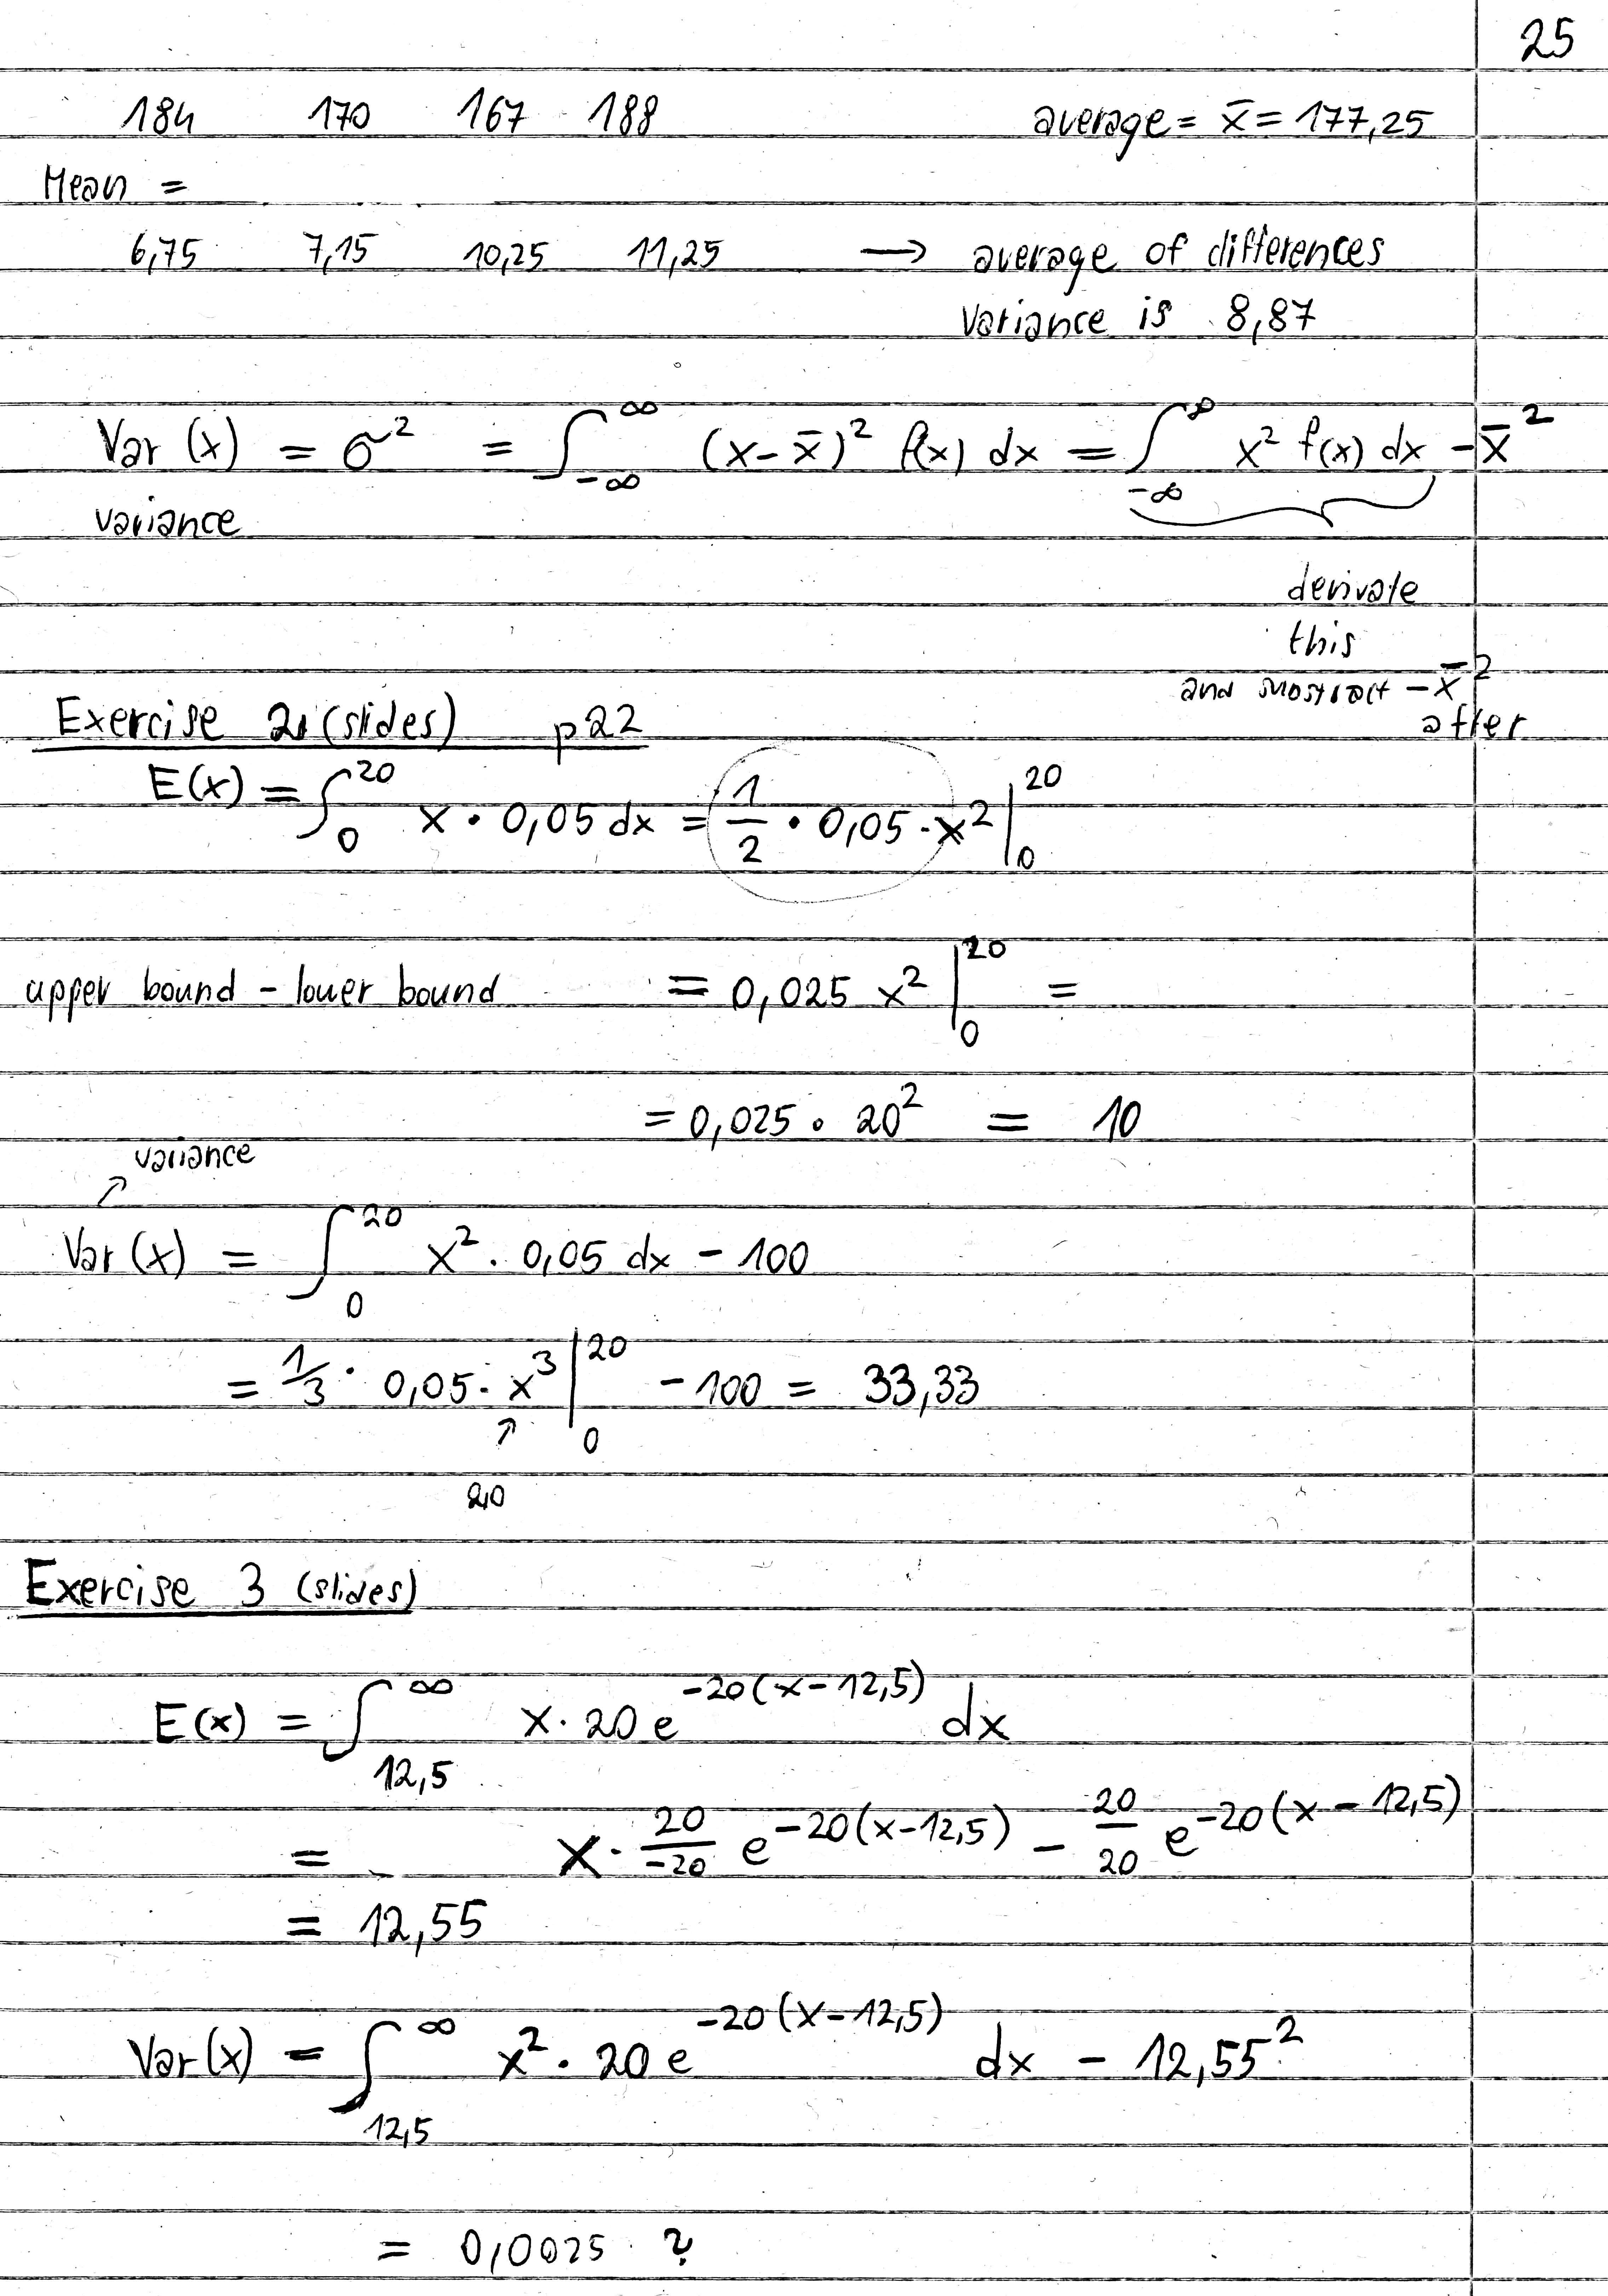 25
184 170 167 188 average = x̄ = 177,25
Mean =
6,75 7,15 10,25 11,25 → average of differences
variance is 8,87
Var (x) = σ² = ∫_{-∞}^{∞} (x - x̄)² f(x) dx = ∫_{-∞}^{∞} x² f(x) dx - x̄²
variance
derivate
this
and - x̄²
after
Exercise 2 (slides) p22
E(x) = ∫_0^{20} x · 0,05 dx = 1/2 · 0,05 · x² |_0^{20}
upper bound - lower bound = 0,025 x² |_0^{20} =
= 0,025 · 20² = 10
variance
↗
Var (x) = ∫_0^{20} x² · 0,05 dx - 100
= 1/3 · 0,05 · x³ |_0^{20} - 100 = 33,33
↗
20
Exercise 3 (slides)
E(x) = ∫_{12,5}^{∞} x · 20 e^{-20(x-12,5)} dx
= x · 20/-20 e^{-20(x-12,5)} - 20/20 e^{-20(x-12,5)}
= 12,55
Var(x) = ∫_{12,5}^{∞} x² · 20 e^{-20(x-12,5)} dx - 12,55²
= 0,0025 ?